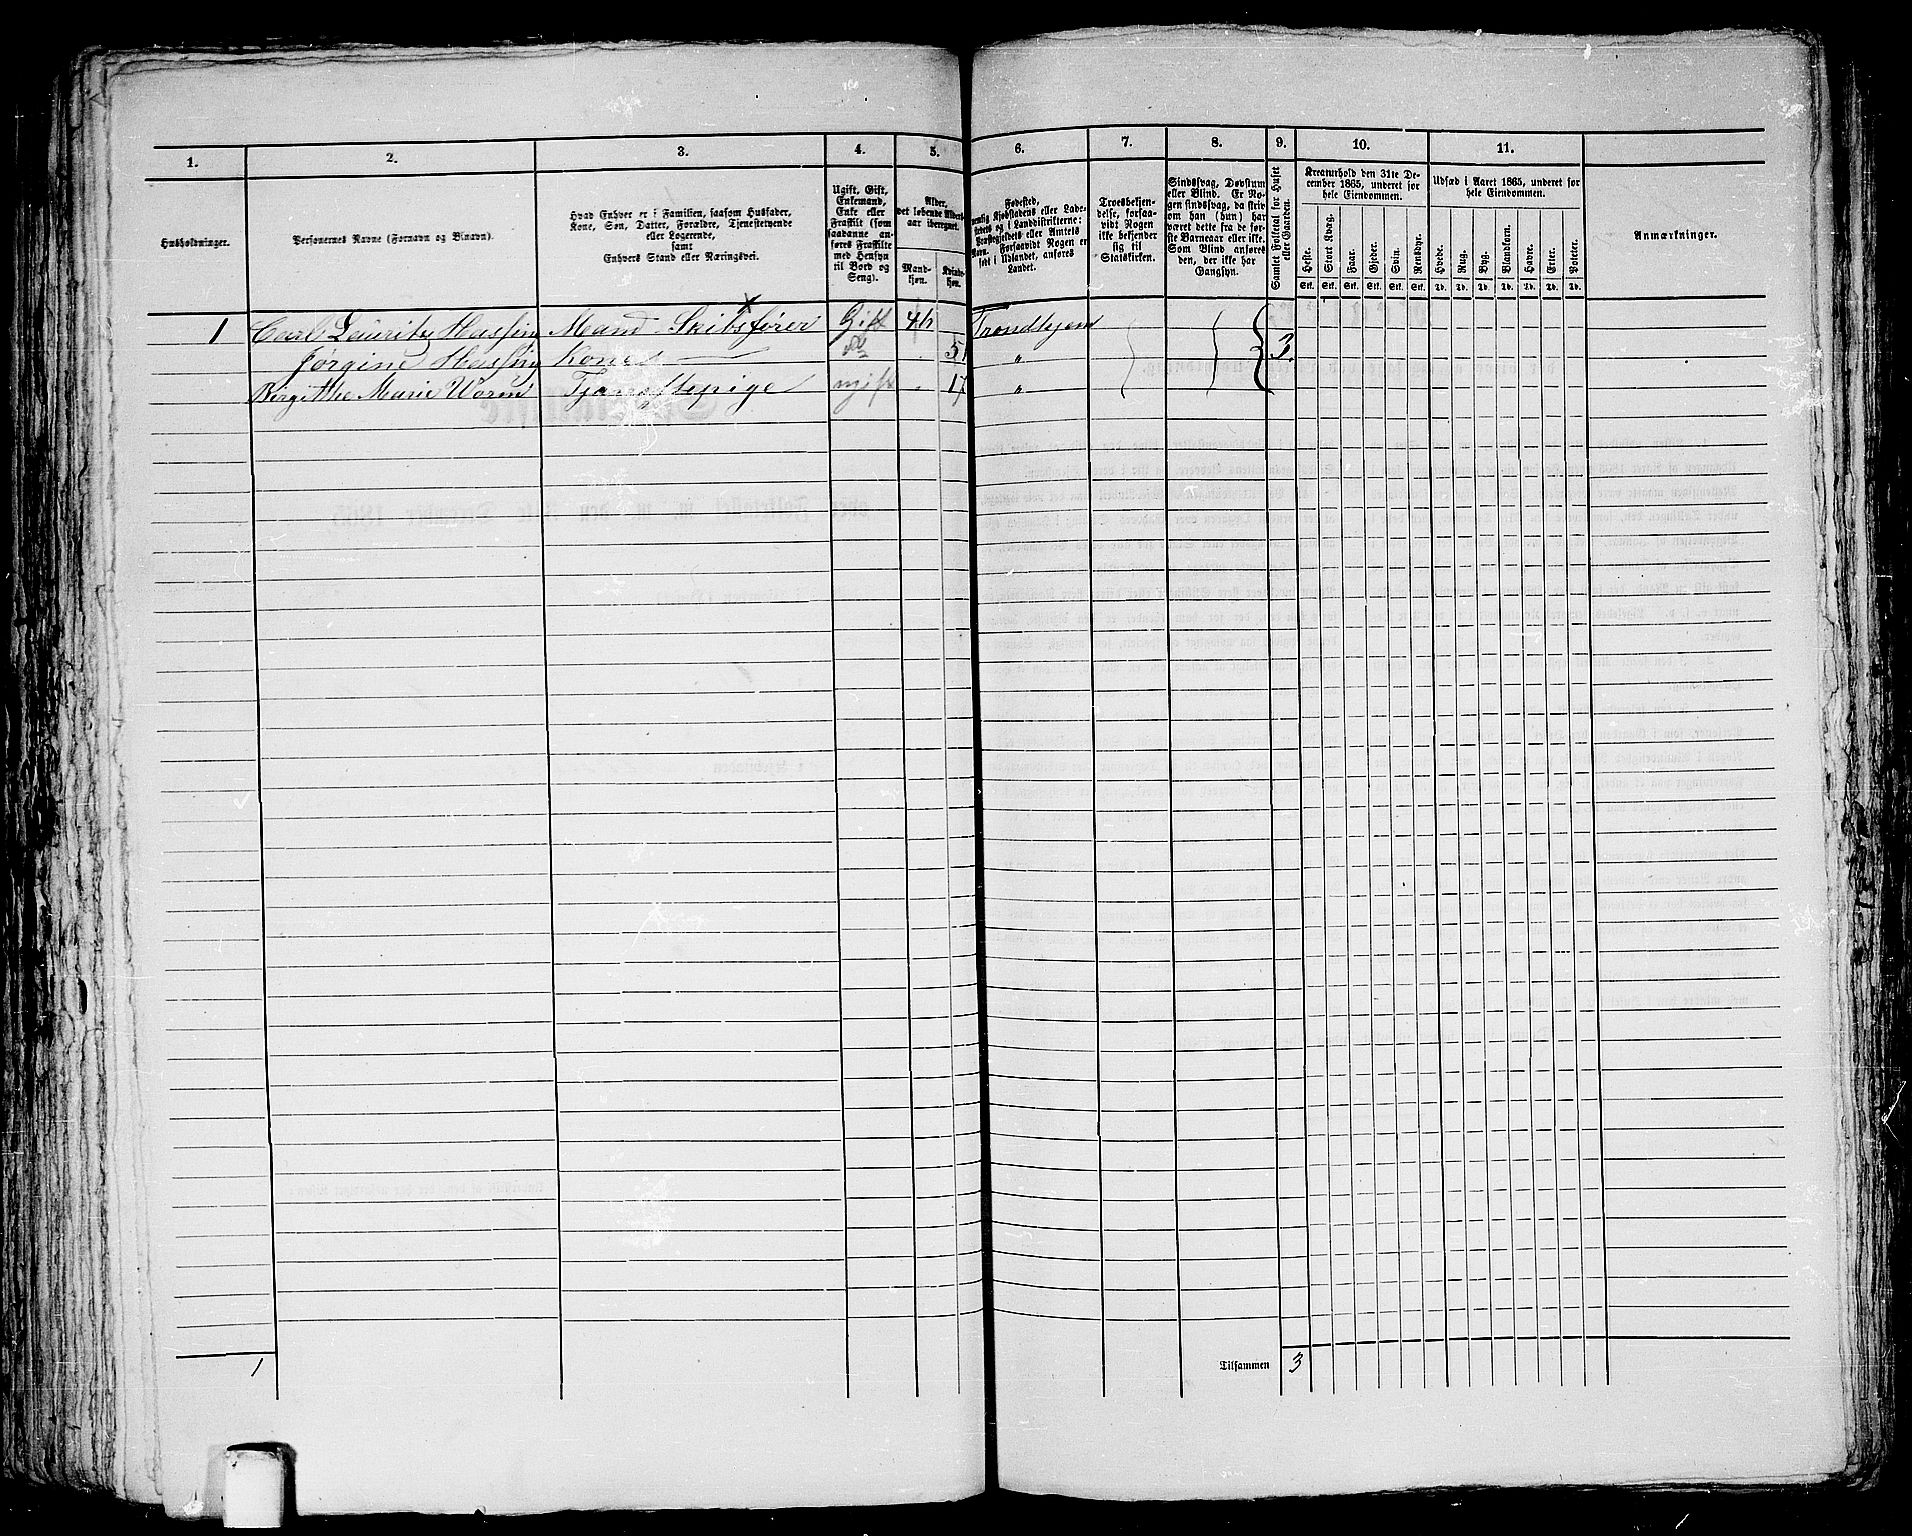 1. 2. 3. 4. 5. 6. 7. 8. 9. 10. 11.
Husholdninger.
Personernes Navne (Fornavn og Binavn).
Hvad Enhver er i Familien, saasom Husfader,
Kone, Søn, Datter, Forældre, Tjenestetyende
eller Logerende,
samt
Enhvers Stand eller Næringsvei.
Ugift, Gift,
Enkemand,
Enke eller
Fraskilt (som
saadanne an-
føres Fraskilte
med Hensyn
til Bord og
Seng).
Alder,
det løbende Alders-
aar iberegnet.
Mand-
kjøn.
Kvinde-
kjøn.
Fødested,
Kjøbstadens eller Lade-
stedets og i Landdistrikterne:
Præstegjeldets eller Amtets
Navn. Forsaavidt Nogen er
født i Udlandet, anføres
Landet.
Troesbekjen-
delse, forsaa-
vidt Nogen
ikke bekjender
sig til
Statskirken.
Sindssvag, Døvstum
eller Blind. Er No-
gen sindssvag, da skriv
om han (hun) har
været dette fra de før-
ste Barneaar eller ikke.
Som Blind anføres
den, der ikke har
Gangsyn.
Samlet Folketal for Huset
eller Gaarden.
Kreaturhold den 31te De-
cember 1865, underet for
hele Eiendommen.
Heste. Stort Kvæg. Faar. Gjeder. Svin. Rensdyr.
Stk. Stk. Stk. Stk. Stk. Stk.
Udsæd i Aaret 1865, underet for
hele Eiendommen.
Hvede. Rug. Byg. Blandkorn. Havre. Erter. Poteter.
Td. Td. Td. Td. Td. Td. Td.
Anmærkninger.
1 Carl Lauritz Hassing Mand Skibsfører Gift 46 Trondhjem
Jørgine Hassing Kone do 51 „ 3.
Birgitthe Marie Worm Tjenestepige ugift 17 „
1 Tilsammen 3